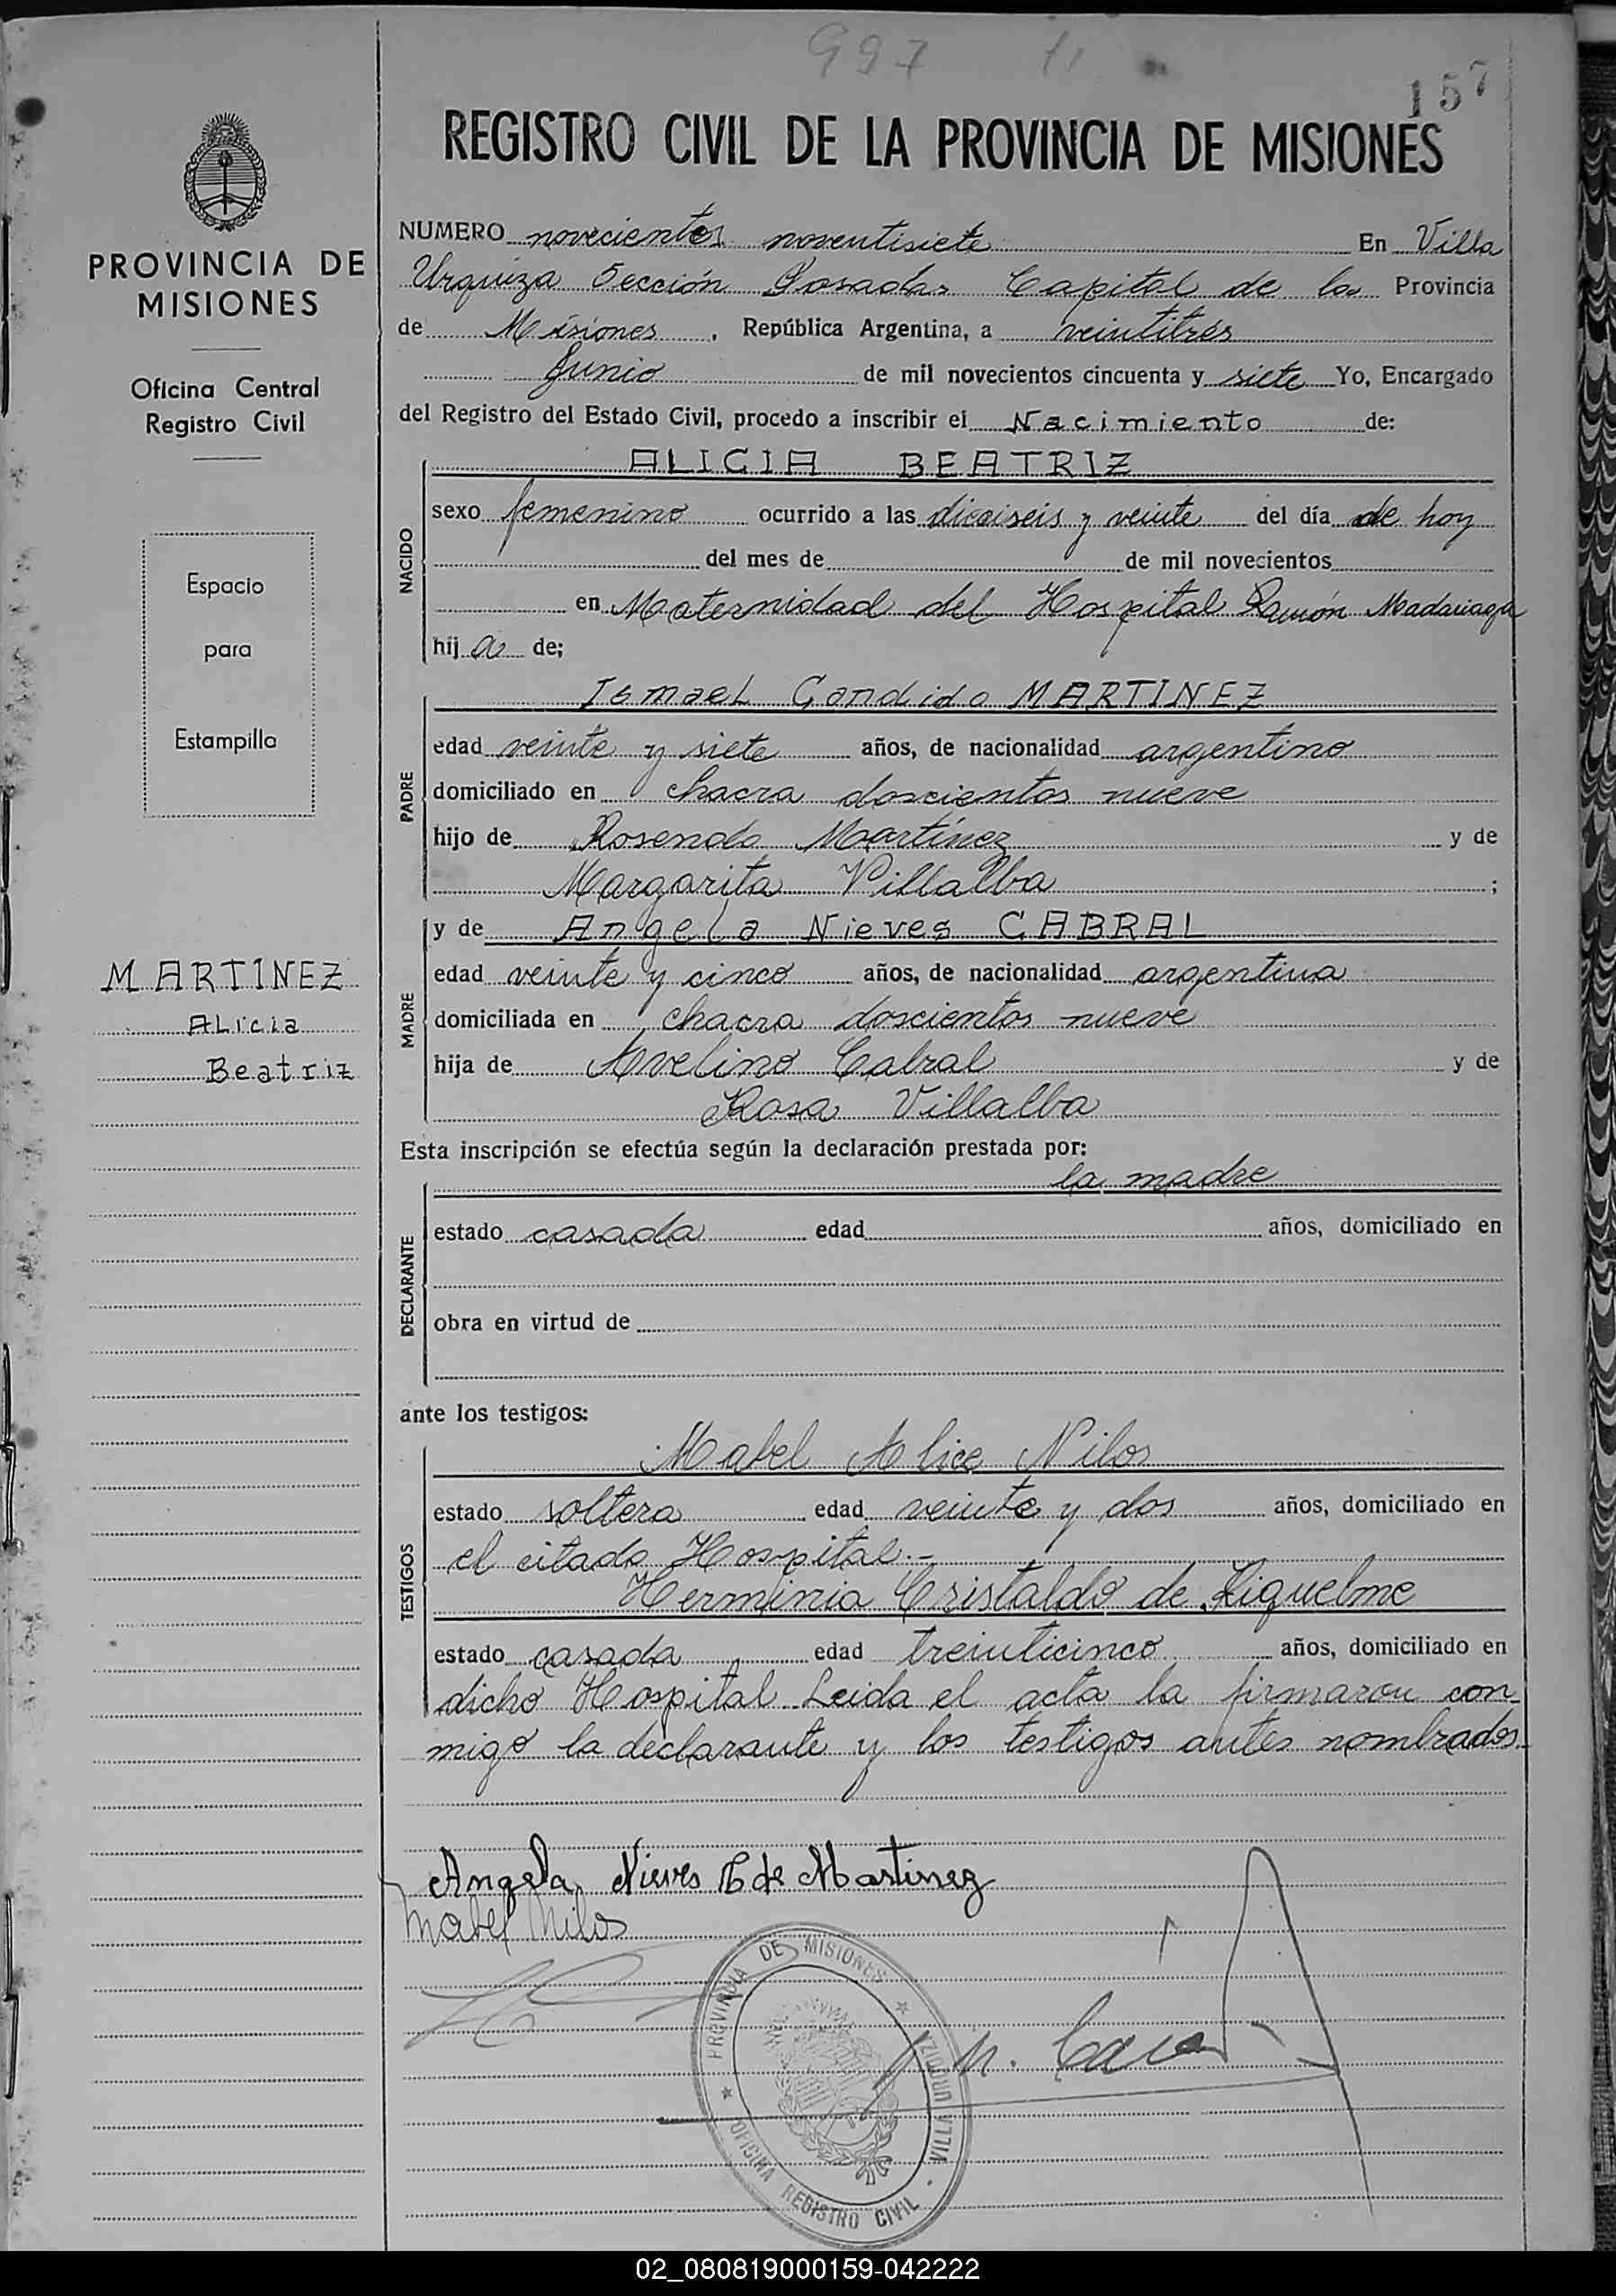 997 11
157
REGISTRO CIVIL DE LA PROVINCIA DE MISIONES
PROVINCIA DE
MISIONES
Oficina Central
Registro Civil
Espacio
para
Estampilla
MARTINEZ
Alicia
Beatriz
NUMERO novecientos noventisiete En Villa
Urquiza Sección Posadas Capital de la Provincia
de Misiones, República Argentina, a veintitrés
Junio de mil novecientos cincuenta y siete Yo, Encargado
del Registro del Estado Civil, procedo a inscribir el Nacimiento de:
NACIDO
ALICIA BEATRIZ
sexo femenino ocurrido a las dieciseis y veinte del día de hoy
del mes de de mil novecientos
en Maternidad del Hospital Ramón Madariaga
hij a de;
PADRE
Ismael Candido MARTINEZ
edad veinte y siete años, de nacionalidad argentino
domiciliado en chacra doscientos nueve
hijo de Rosendo Martínez y de
Margarita Villalba ;
MADRE
y de Angela Nieves CABRAL
edad veinte y cinco años, de nacionalidad argentina
domiciliada en chacra doscientos nueve
hija de Avelino Cabral y de
Rosa Villalba
Esta inscripción se efectúa según la declaración prestada por:
DECLARANTE
la madre
estado casada edad años, domiciliado en
obra en virtud de
ante los testigos:
TESTIGOS
Mabel Alice Nilos
estado soltera edad veinte y dos años, domiciliado en
el citado Hospital.-
Herminia Cristaldo de Riquelme
estado casada edad treinticinco años, domiciliado en
dicho Hospital Leida el acta la firmaron con
migo la declarante y los testigos antes nombrados.-
Angela Nieves C de Martinez
Mabel Nilos
PROVINCIA DE MISIONES
VILLA URQUIZA
OFICINA REGISTRO CIVIL
02_080819000159-042222